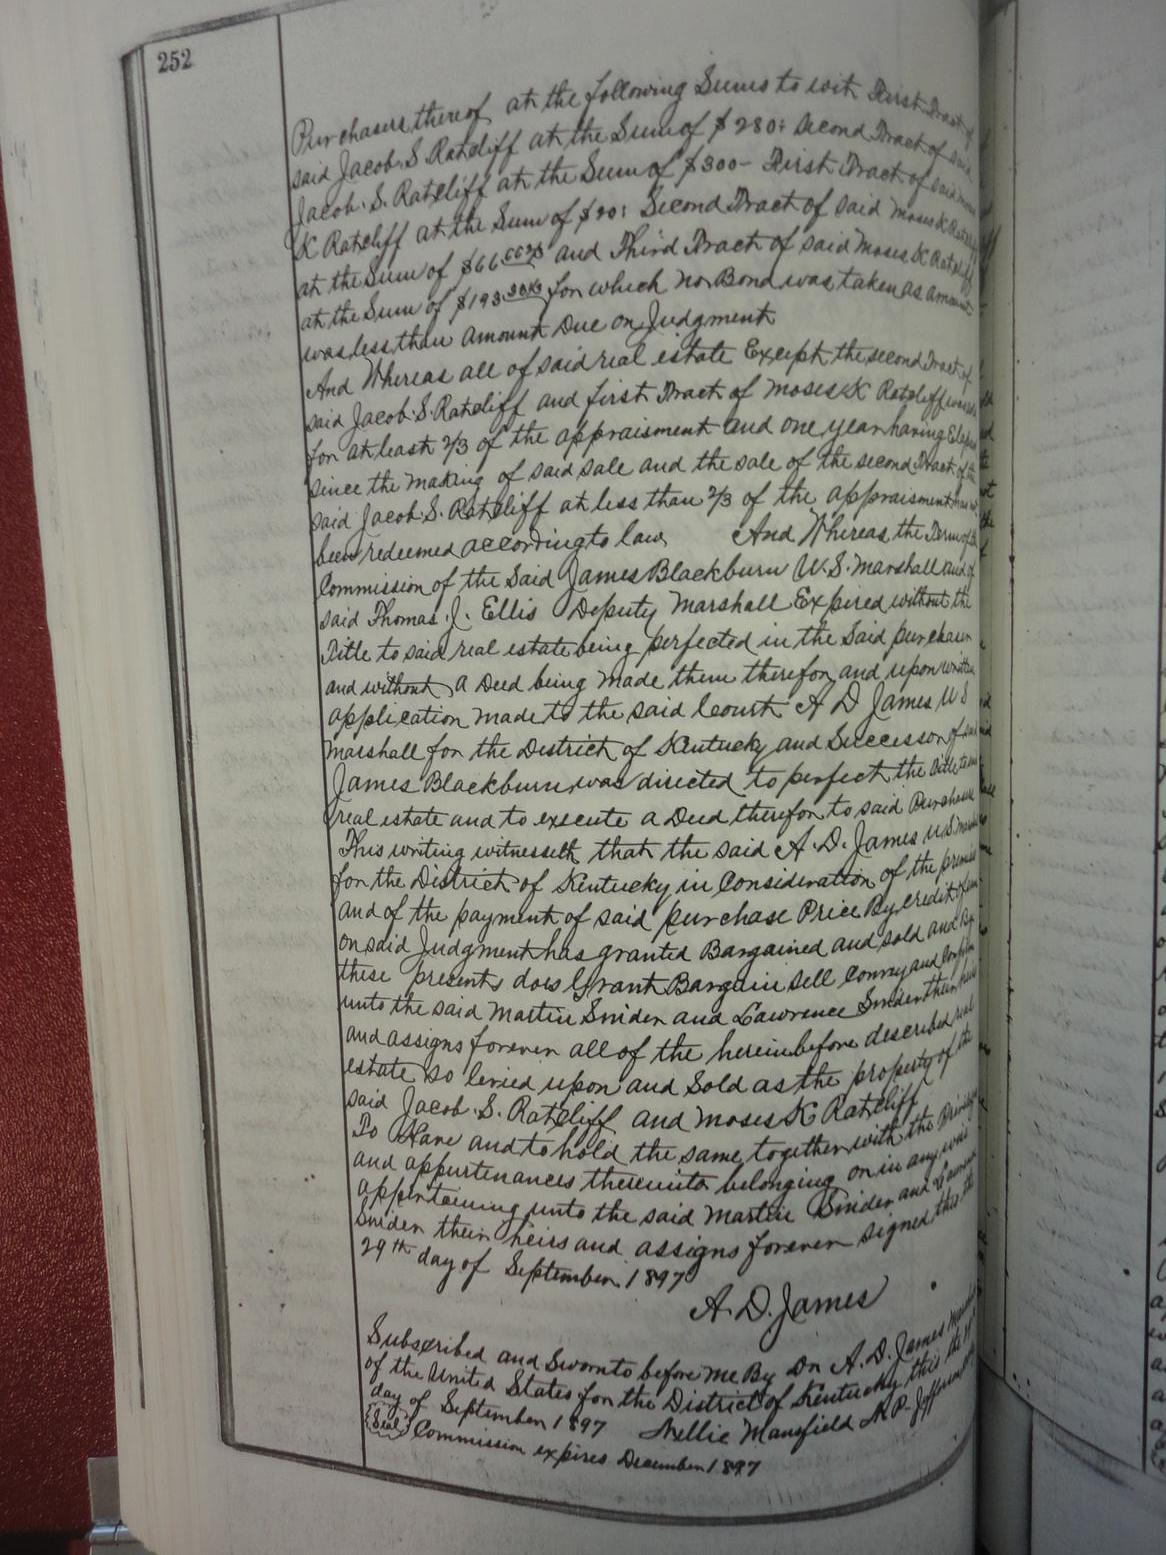 252
Purchasers thereof at the following Sums to wit First Tract of
said Jacob. S. Ratcliff at the Sum of $280: Second Tract of said
Jacob. S. Ratcliff at the Sum of $300- First Tract of said Moses
K Ratcliff at the Sum of $20: Second Tract of said Moses K Ratcliff
at the Sum of $66 and Third Tract of said Moses K Ratcliff
at the Sum of $193 for which no Bond was taken as amount
was less than Amount Due on Judgment
And Whereas all of said real estate Except the second Tract of
said Jacob. S. Ratcliff and first Tract of Moses K Ratcliff
for at least 2/3 of the appraisment and one year having Elapsed
since the making of said sale and the sale of the second Tract of the
said Jacob. S. Ratcliff at less than 2/3 of the appraisment has not
been redeemed according to law And Whereas the Term of the
Commission of the Said James Blackburn U.S. Marshall and of
said Thomas. J. Ellis Deputy Marshall Expired without the
Title to said real estate being perfected in the Said purchasers
and without a Deed being made them therefor and upon written
application made to the said Court A D James U S
Marshall for the District of Kentucky and Successor of said
James Blackburn was directed to perfect the title to said
real estate and to execute a Deed therefor to said Purchasers
This writing witnesseth that the said A. D. James U.S. Marshall
for the District of Kentucky in Consideration of the premises
and of the payment of said purchase Price By credit
on said Judgment has granted Bargained and sold and By
these presents does Grant Bargain sell Convey and Confirm
unto the said Martin Snider and Lawrence Snider their heirs
and assigns forever all of the hereinbefore described real
estate so levied upon and Sold as the property of the
said Jacob. S. Ratcliff and Moses K Ratcliff
To Have and to hold the same together with the Privileges
and appurtenances thereunto belonging or in any wise
appertaining unto the said Martin Snider and Lawrence
Snider their heirs and assigns forever signed this the
29th day of September 1897
A. D. James
Subscribed and Sworn to before me By Dr A. D. James Marshall
of the United States for the District of Kentucky this the
day of September 1897 Nellie Mansfield N. P. Jefferson
(Seal) Commission expires December 1897